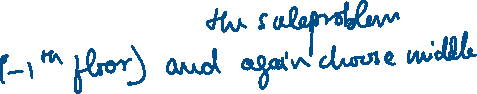 the subproblem
(-1th floor) and again choose middle